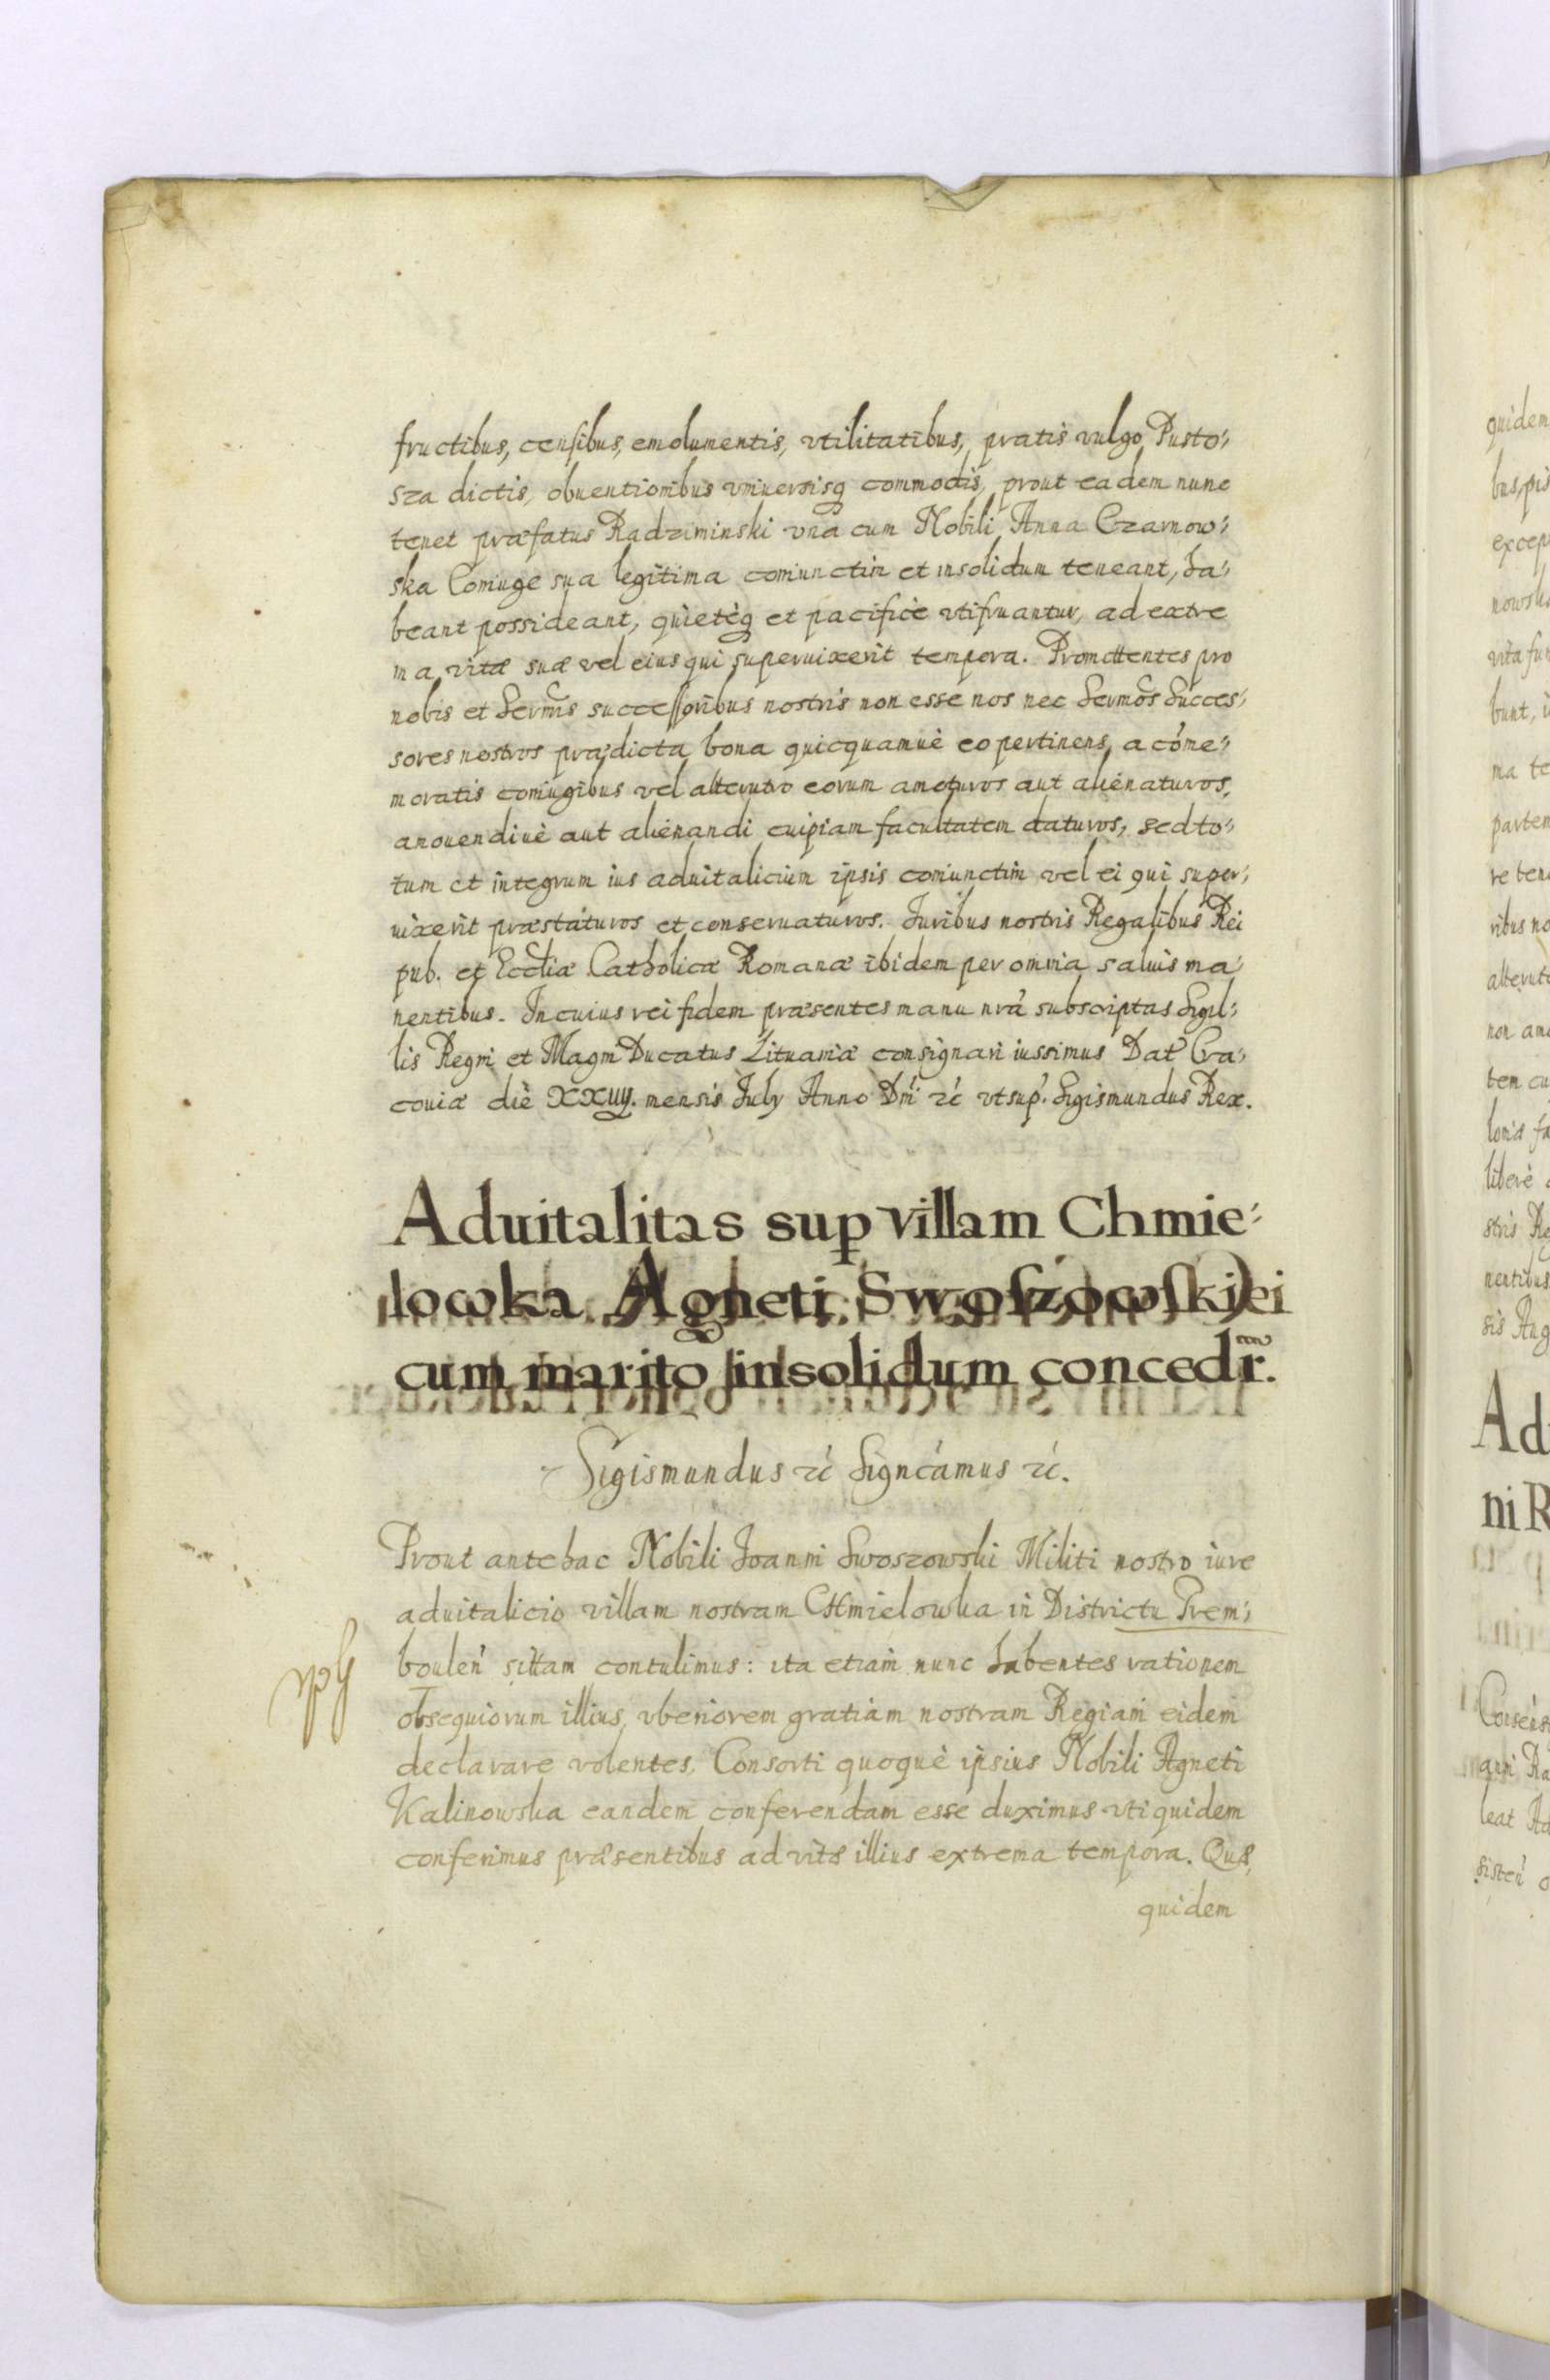 fructibus, censibus, emolumentis, vtilitatibus, pratis vulgo Pusto:
sza dictis, obuentionibus vniuersisq commodis, prout eadem nunc
tenet præfatus Radziminski vna cum Nobili Anna Czarnow:
ska Coniuge sua legitima coniunctim et insolidum teneant, ha:
beant possideant, quietèq et pacificè vtifruantur, ad extre
ma vitæ suæ vel eius qui superuixerit tempora. Promittentes pro
nobis et Sermis successoribus nostris non esse nos nec Sermos Succes:
sores nostros prædicta bona quicquamuè eo pertinens, a cóme:
moratis coniugibus vel alterutro eorum amoturos aut alienaturos,
amouendiuè aut alienandi cuipiam facultatem daturos, sed to:
tum et integrum ius aduitalicium ipsis coniunctim vel ei qui super:
uixerit præstaturos et conseruaturos. Iuribus nostris Regalibus Rei
pub. et Eccliæ Catholicæ Romanæ ibidem per omnia saluis ma:
nentibus. In cuius rei fidem præsentes manu nrá subscriptas Sigil:
lis Regni et Magni Ducatus Lituaniæ consignari iussimus Dat Cra:
couiæ diè XXIIII. mensis July Anno Dni ꝛc vt sup. Sigismundus Rex.
Aduitalitas sup villam Chmie:
lowka Agneti Swoſzowſkiei
cum marito insolidum concedr.
Sigismundus ꝛc Signcámus ꝛc.
Prout antehac Nobili Ioanni Swoszowski Militi nostro iure
aduitalicio villam nostram CHmielowka in Districtu Trem:
boulen sittam contulimus: ita etiam nunc habentes rationem
obsequiorum illius, vberiorem gratiam nostram Regiam eidem
declarare volentes, Consorti quoquè ipsius Nobili Agneti
Kalinowska eandem conferendam esse duximus vti quidem
conferimus præsentibus ad vitæ illius extrema tempora. Quæ,
quidem
quidem
excep
nowska
vita fu
bunt, i
ma te
partem
ribus no
alterut
non amo
tem cu
liberè
stris Re
nentibus
sis Aug
Ad
ni R
Consens
leat Ad